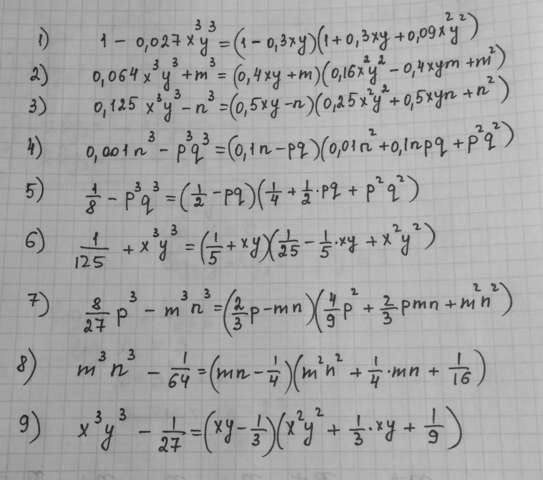 1) 1 - 0,027x³y³ = (1 - 0,3xy)(1 + 0,3xy + 0,09x²y²)
2) 0,064x³y³ + m³ = (0,4xy + m)(0,16x²y² - 0,4xym + m²)
3) 0,125x³y³ - n³ = (0,5xy - n)(0,25x²y² + 0,5xyn + n²)
4) 0,001n³ - p³q³ = (0,1n - pq)(0,01n² + 0,1npq + p²q²)
5) 1/8 - p³q³ = (1/2 - pq)(1/4 + 1/2·pq + p²q²)
6) 1/125 + x³y³ = (1/5 + xy)(1/25 - 1/5·xy + x²y²)
7) 8/27 p³ - m³n³ = (2/3 p - mn)(4/9 p² + 2/3 pmn + m²n²)
8) m³n³ - 1/64 = (mn - 1/4)(m²n² + 1/4·mn + 1/16)
9) x³y³ - 1/27 = (xy - 1/3)(x²y² + 1/3·xy + 1/9)